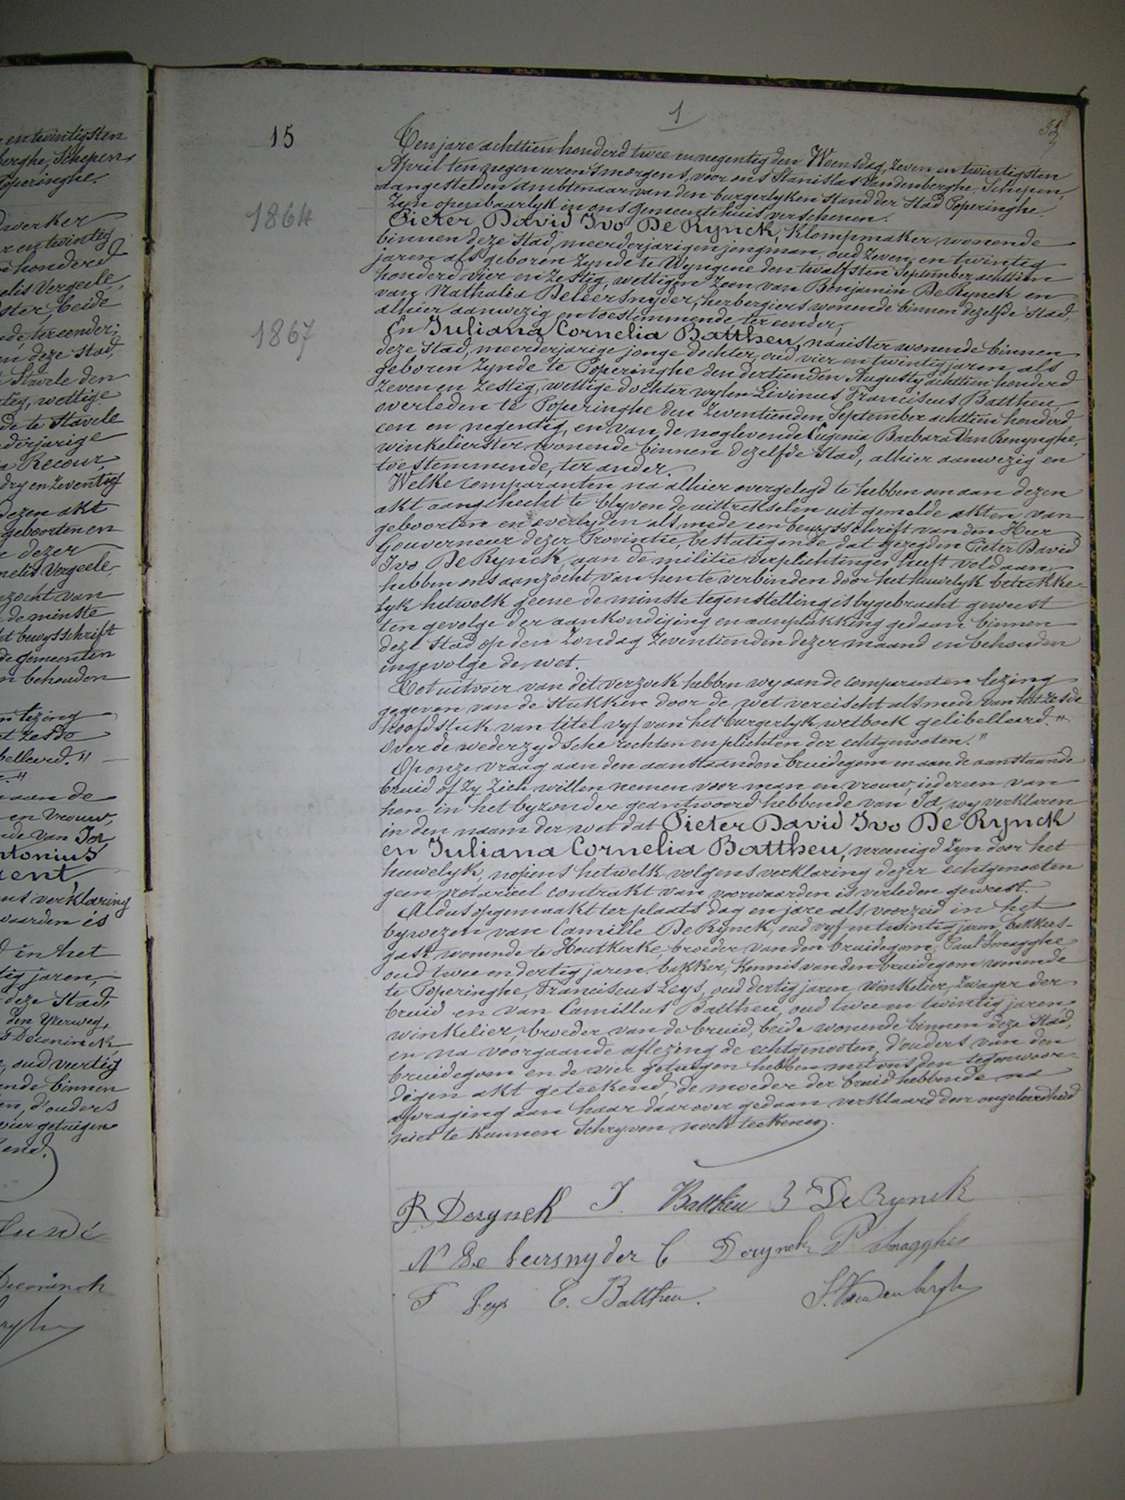 1
15
Ten jare achttien honderd twee en negentig den Woensdag, zeven en twintigsten
April ten negen uren s'morgens, voor ons Stanislas Vandenberghe, Schepen,
aangestelden ambtenaar van den burgerlyken stand der Stad Poperinghe,
zyn openbaarlyk in ons gemeentehuis verschenen.
1864
Pieter David Ivo De Rynck, klompmaker, wonende
binnen deze Stad, meerderjarigen jongman, oud zeven en twintig
jaren als geboren zynde te Wyngene den twalfsten September achttien
honderd vier en zestig, wettigen zoon van Benjamin De Rynck en
van Nathalia Deleersnyder, herbergiers wonende binnen dezelfde Stad,
alhier aanwezig en toestemmende ter eender,
1867
En Juliana Cornelia Battheu, naaister wonende binnen
deze Stad, meerderjarige jonge dochter, oud vier en twintig jaren, als
geboren zynde te Poperinghe den dertienden Augusty achttien honderd
zeven en zestig, wettige dochter wylen Livinus Franciscus Battheu,
overleden te Poperinghe den zeventienden September achttien honderd
een en negentig, en van de noglevende Eugenia Barbara Van Renynghe,
winkelierster wonende binnen dezelfde Stad, alhier aanwezig en
toestemmende, ter ander.
Welke comparanten na alhier overgelegd te hebben om aan dezen
akt aangehecht te blyven de uittrekselen uit gemelde akten, van
geboorten en overlyden als mede een bewysschrift van den Heer
Gouverneur dezer Provintie, bestatigende dat gezegden Pieter David
Ivo De Rynck aan de militie verplichtingen heeft voldaan,
hebben ons aanzocht van hen te verbinden door het huwelyk betrekke-
lyk hetwelk geene de minste tegenstelling is bygebracht geweest
ten gevolge der aankondiging en aanplakking gedaan binnen
deze Stad op den Zondag zeventienden dezer maand en behouden
ingevolge de wet.
Tot uitvoer van dit verzoek hebben wy aan de comparanten lezing
gegeven van de stukken door de wet vereischt als mede van het zesde
hoofdstuk van titel vyf van het burgerlyk wetboek gelibelleerd: "
Over de wederzydsche rechten en plichten der echtgenooten."
Op onze vraag aan den aanstaanden bruidegom en aan de aanstaande
bruid of zy zich willen nemen voor man en vrouw, iedereen van
hen in het byzonder geantwoord hebbende van Ja, wy verklaren
in den naam der wet dat Pieter David Ivo De Rynck
en Juliana Cornelia Battheu, vereenigd zyn door het
huwelyk, nopens hetwelk volgens verklaring dezer echtgenooten
geen notarieel contrakt van voorwaarden is verleden geweest.
Aldus opgemaakt ter plaats dag en jare als voorzeid in het
bywezen van Camille De Rynck, oud vyf en twintig jaren, bakkers-
gast, wonende te Houtkerke, broeder van den bruidegom, Paul Smagghe
oud twee en dertig jaren bakker, kennis van den bruidegom wonende
te Poperinghe, Franciscus Leys, oud dertig jaren, winkelier, zwager der
bruid en van Camillus Battheu, oud twee en twintig jaren,
winkelier, broeder van de bruid, beide wonende binnen deze Stad,
en na voorgaande aflezing de echtgenooten, d'ouders van den
bruidegom en de vier getuigen hebben met ons den tegenwoor-
digen akt geteekend, de moeder der bruid hebbende na
afvraging aan haar daarover gedaan verklaard door ongeleerdheid
niet te kunnen schryven noch teekenen.
P. Derynck J. Battheu B De Rynck
N De Leersnyder C Derynck P Smagghe
F Leys C. Battheu. S. Vandenberghe